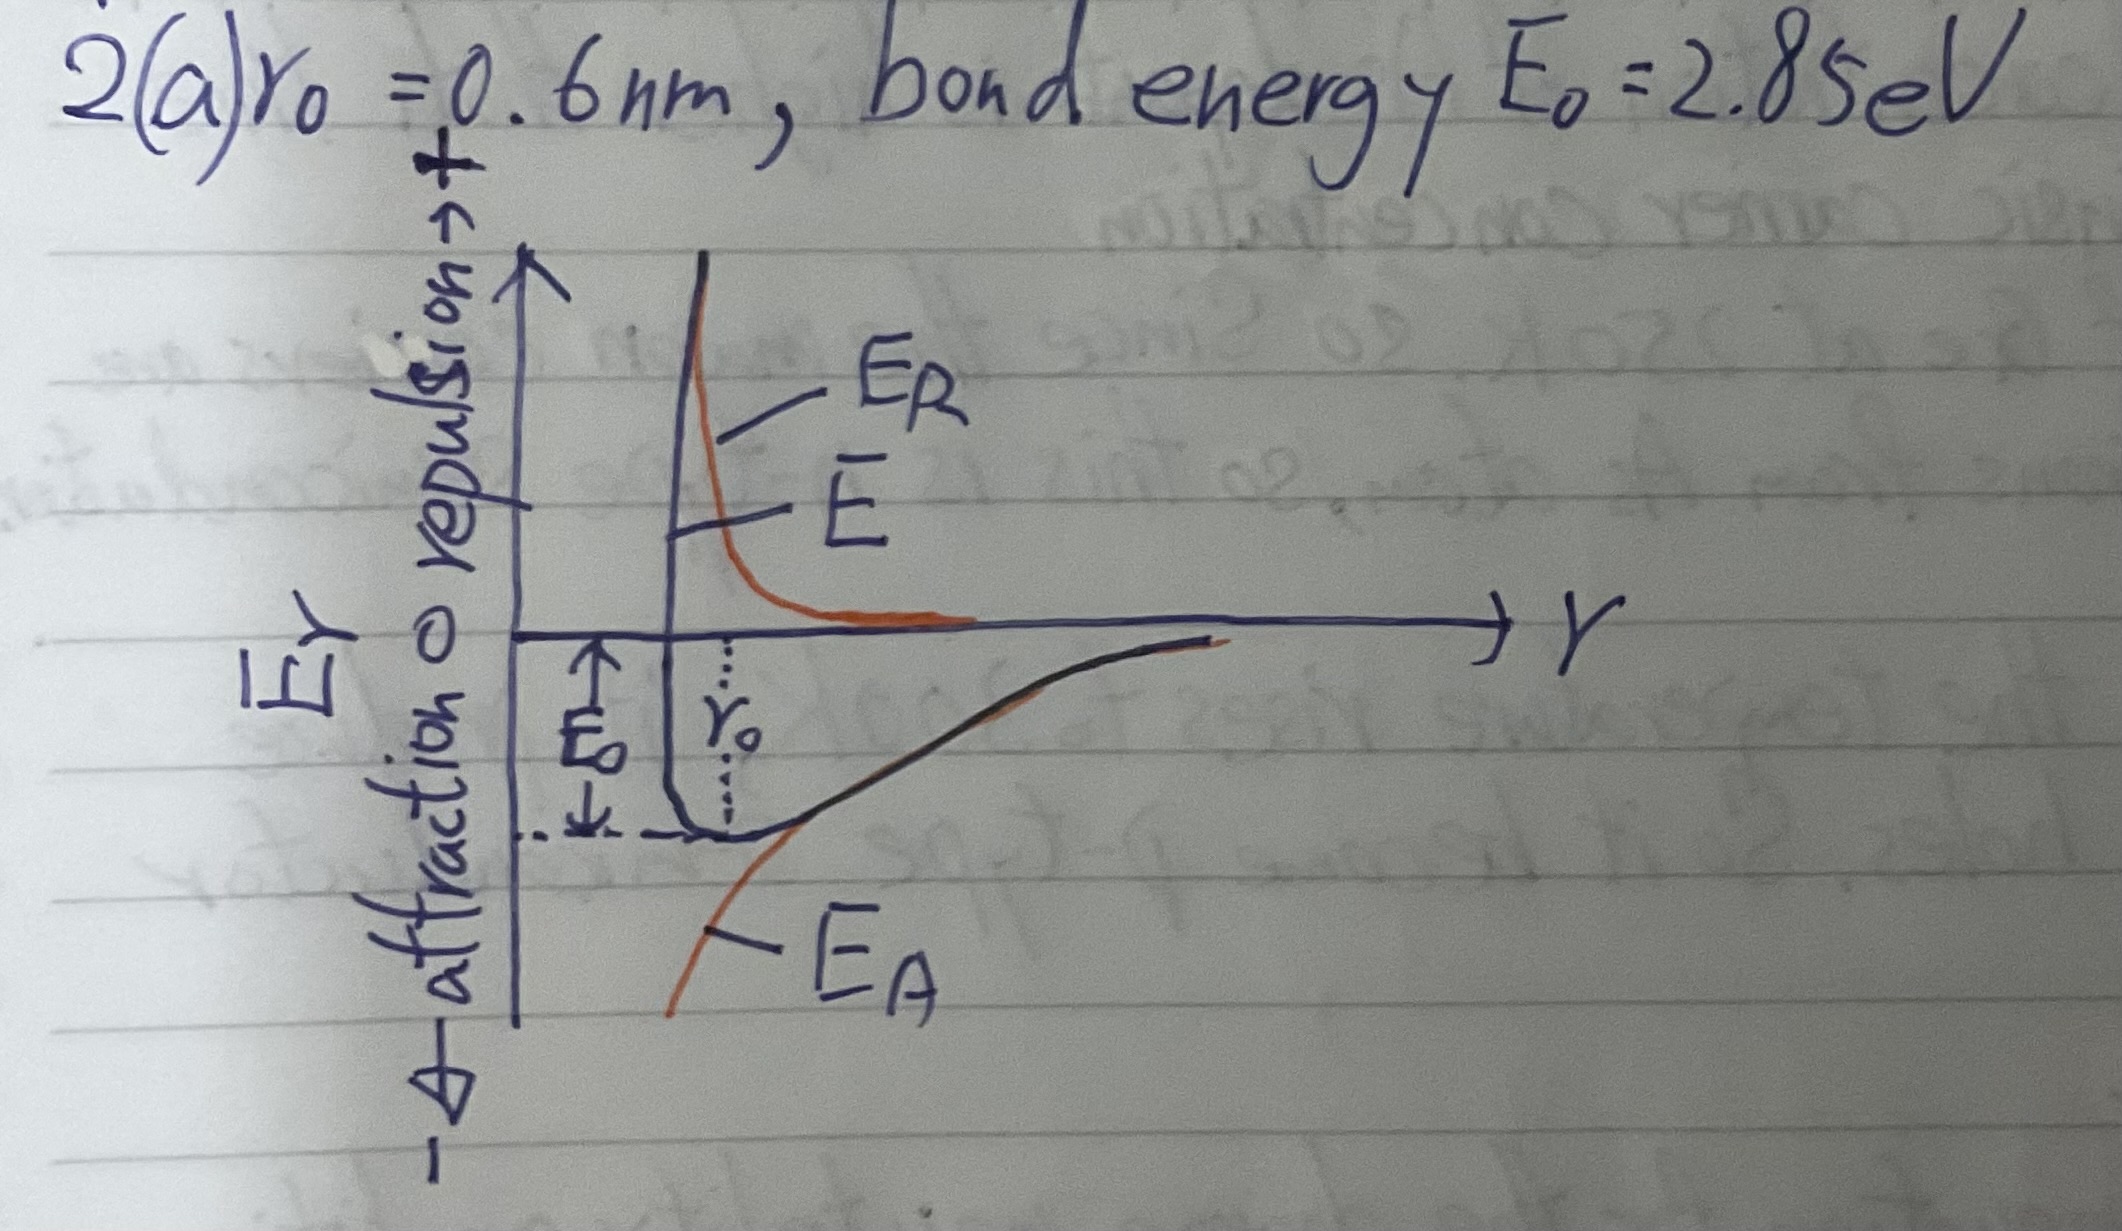 2(a) r₀ = 0.6nm, bond energy E₀ = 2.85eV
- ← attraction 0 repulsion → +
E_R
E
E_r
r
E₀
r₀
E_A